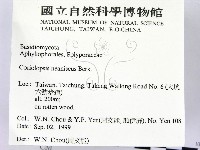 國立自然科學博物館
NATIONAL MUSEUM OF NATURAL SCIENCE
TAICHUNG, TAIWAN, R.O.CHINA
Basidiomycota
Aphyllophorales, Polyporaceae
Coriolopsis neaniscus Berk
Loc: Taiwan, Taichung, Takeng Walking Road No. 6
alt. 200m
on rotten wood
Col: W.N. Chou & Y.P. Yen No. Yen 108
Sep. 02, 1999
Det: W.N. Chou